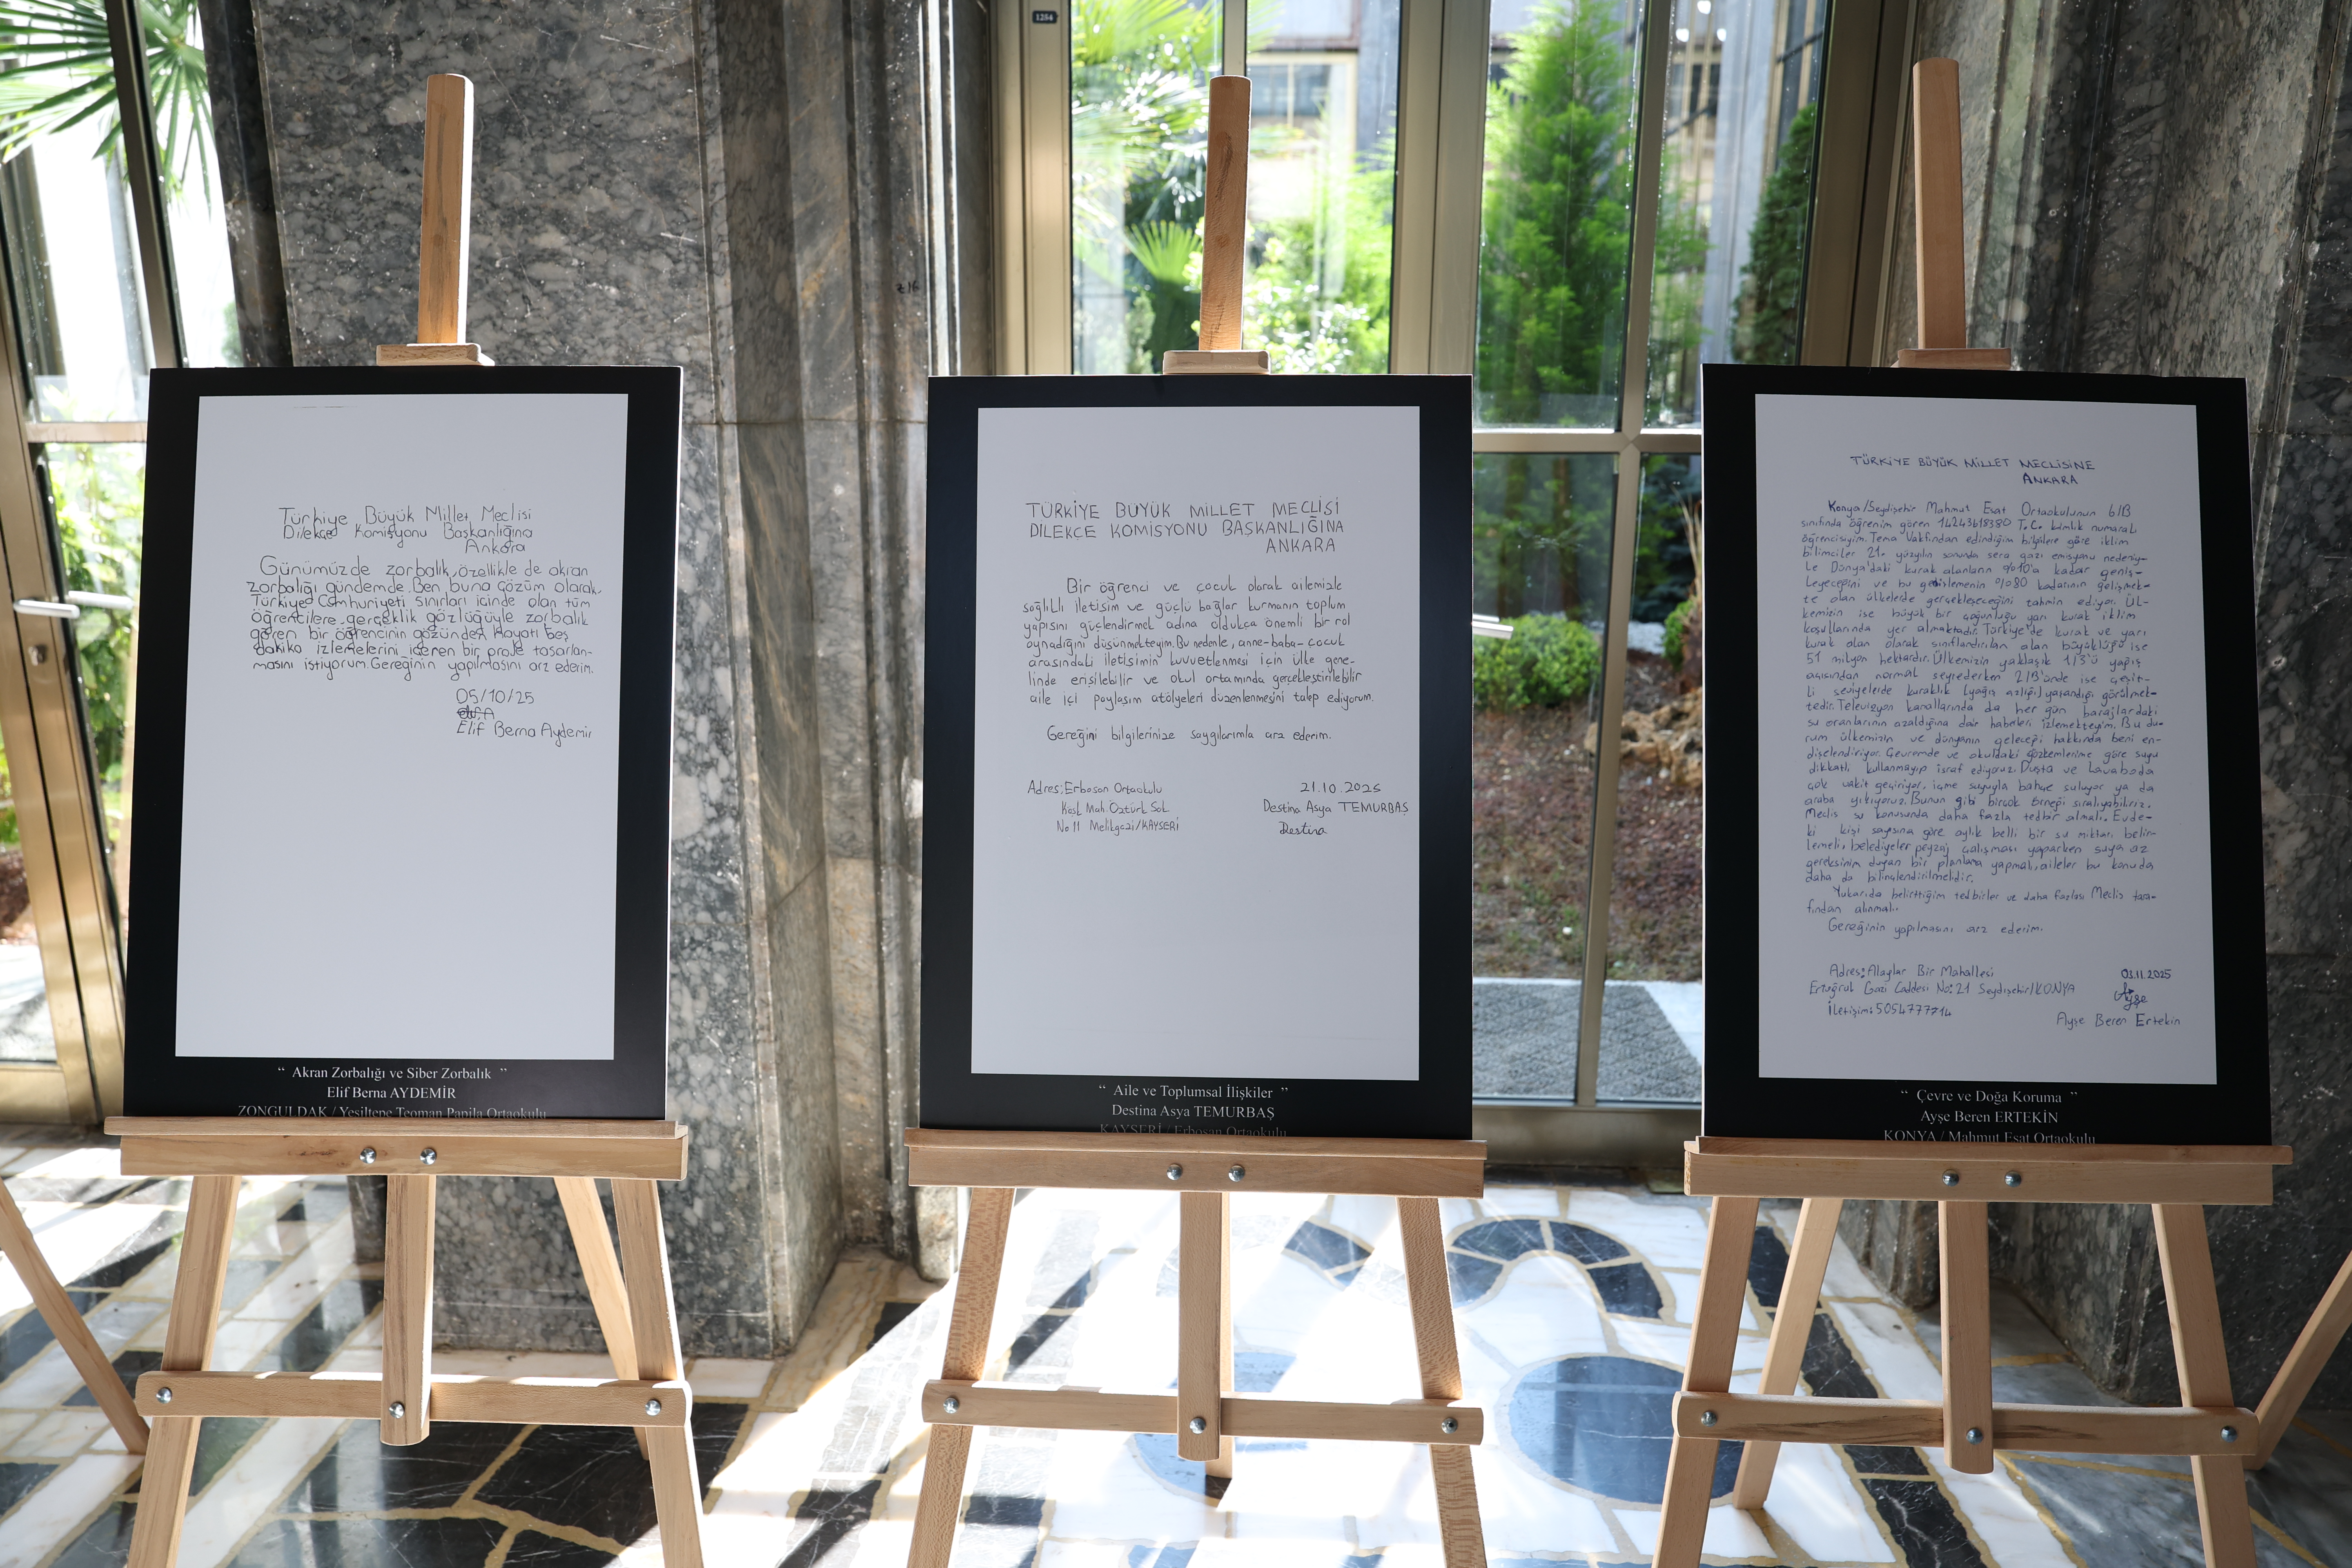 1254
Türkiye Büyük Millet Meclisi
Dilekçe Komisyonu Başkanlığına
Ankara
Günümüzde zorbalık, özellikle de akran
zorbalığı gündemde. Ben buna çözüm olarak,
Türkiye Cumhuriyeti sınırları içinde olan tüm
öğrencilere gerçeklik gözlüğüyle zorbalık
gören bir öğrencinin gözünden hayatı beş
dakika izlemelerini içeren bir proje tasarlan-
masını istiyorum. Gereğinin yapılmasını arz ederim.
05/10/25
Elif Berna Aydemir
“ Akran Zorbalığı ve Siber Zorbalık ”
Elif Berna AYDEMİR
ZONGULDAK / Yeşiltepe Teoman Papila Ortaokulu
TÜRKİYE BÜYÜK MİLLET MECLİSİ
DİLEKÇE KOMİSYONU BAŞKANLIĞINA
ANKARA
Bir öğrenci ve çocuk olarak ailemizle
sağlıklı iletişim ve güçlü bağlar kurmanın toplum
yapısını güçlendirmek adına oldukça önemli bir rol
oynadığını düşünmekteyim. Bu nedenle, anne-baba-çocuk
arasındaki iletişimin kuvvetlenmesi için ülke gene-
linde erişilebilir ve okul ortamında gerçekleştirilebilir
aile içi paylaşım atölyeleri düzenlenmesini talep ediyorum.
Gereğini bilgilerinize saygılarımla arz ederim.
Adres: Erbosan Ortaokulu
Mah. Öztürk Sok.
No 11 Melikgazi/KAYSERİ
21.10.2025
Destina Asya TEMURBAŞ
Destina
“ Aile ve Toplumsal İlişkiler ”
Destina Asya TEMURBAŞ
KAYSERİ / Erbosan Ortaokulu
TÜRKİYE BÜYÜK MİLLET MECLİSİNE
ANKARA
Konya/Seydişehir Mahmut Esat Ortaokulunun 6/B
sınıfında öğrenim gören T.C. kimlik numaralı
öğrencisiyim. Tema Vakfından edindiğim bilgilere göre iklim
bilimciler 21. yüzyılın sonunda sera gazı emisyonu nedeniy-
le Dünya'daki kurak alanların %10'a kadar geniş-
leyeceğini ve bu genişlemenin %80 kadarının gelişmek-
te olan ülkelerde gerçekleşeceğini tahmin ediyor. Ül-
kemizin ise büyük bir çoğunluğu yarı kurak iklim
koşullarında yer almaktadır. Türkiye'de kurak ve yarı
kurak alan olarak sınıflandırılan alan büyüklüğü ise
51 milyon hektardır. Ülkemizin yaklaşık 1/3'ü yağış
açısından normal seyrederken 2/3'ünde ise çeşit-
li seviyelerde kuraklık (yağış azlığı) yaşandığı görülmek-
tedir. Televizyon kanallarında da her gün barajlardaki
su oranlarının azaldığına dair haberleri izlemekteyim. Bu du-
rum ülkemizin ve dünyanın geleceği hakkında beni en-
dişelendiriyor. Çevremde ve okuldaki gözlemlerime göre suyu
dikkatli kullanmayıp israf ediyoruz. Duşta ve lavaboda
çok vakit geçiriyor, içme suyuyla bahçe suluyor ya da
araba yıkıyoruz. Bunun gibi birçok örneği sıralayabiliriz.
Meclis su konusunda daha fazla tedbir almalı. Evde-
ki kişi sayısına göre aylık belli bir su miktarı belir-
lemeli, belediyeler peyzaj çalışması yaparken suya az
gereksinim duyan bir planlama yapmalı, aileler bu konuda
daha da bilinçlendirilmelidir.
Yukarıda belirttiğim tedbirler ve daha fazlası Meclis tara-
fından alınmalı.
Gereğinin yapılmasını arz ederim.
Adres: Alaylar Bir Mahallesi
Ertuğrul Gazi Caddesi No:21 Seydişehir/KONYA
İletişim:
03.11.2025
Ayşe
Ayşe Beren Ertekin
“ Çevre ve Doğa Koruma ”
Ayşe Beren ERTEKİN
KONYA / Mahmut Esat Ortaokulu